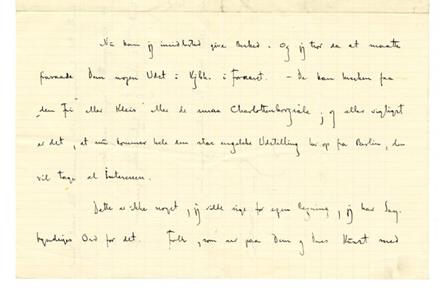 Nu kan jeg imidlertid give Besked. Og jeg tror da at maatte
fraraade Dem nogen Udst. i Kjbh. i Foraaret. – De kan hverken faa
"den Fri" eller Kleis eller de smaa Charlottenborgsale; og aller vigtigst
er det, at nu kommer hele den store engelske Udstilling her op fra Berlin, den
vil tage al Interessen.
Dette er ikke noget, jeg vilde sige for egen Regning, jeg har Sag-
kyndiges Ord for det. Folk, som er paa Dem og Deres Kunst med